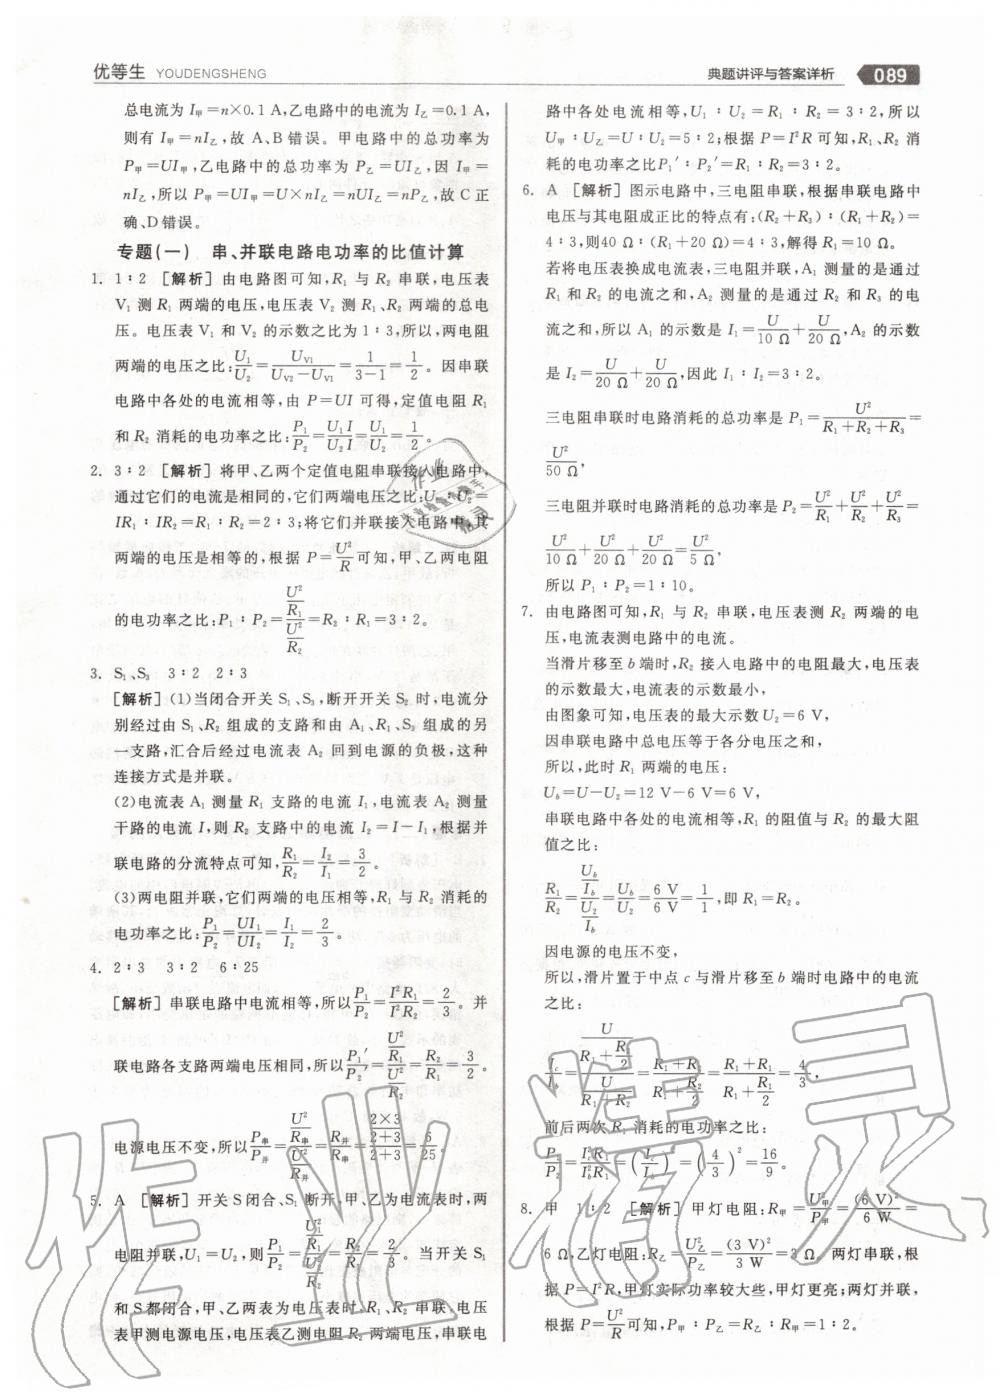 优等生 YOUDENGSHENG
典题讲评与答案详析 089
总电流为 I甲=n×0.1 A,乙电路中的电流为 I乙=0.1 A,
则有 I甲=nI乙,故 A、B 错误。甲电路中的总功率为
P甲=UI甲,乙电路中的总功率为 P乙=UI乙,因 I甲=
nI乙,所以 P甲=UI甲=U×nI乙=nUI乙=nP乙,故 C 正
确、D 错误。
专题(一) 串、并联电路电功率的比值计算
1. 1∶2 [解析] 由电路图可知,R₁ 与 R₂ 串联,电压表
V₁ 测 R₁ 两端的电压,电压表 V₂ 测 R₁、R₂ 两端的总电
压。电压表 V₁ 和 V₂ 的示数之比为 1∶3,所以,两电阻
两端的电压之比:U₁/U₂=UV1/(UV2−UV1)=1/(3−1)=1/2。因串联
电路中各处的电流相等,由 P=UI 可得,定值电阻 R₁
和 R₂ 消耗的电功率之比:P₁/P₂=U₁I/U₂I=U₁/U₂=1/2。
2. 3∶2 [解析] 将甲、乙两个定值电阻串联接入电路中,
通过它们的电流是相同的,它们两端电压之比:U₁∶U₂=
IR₁∶IR₂=R₁∶R₂=2∶3;将它们并联接入电路中,其
两端的电压是相等的,根据 P=U²/R 可知,甲、乙两电阻
的电功率之比:P₁∶P₂=(U²/R₁)/(U²/R₂)=R₂∶R₁=3∶2。
3. S₁、S₃ 3∶2 2∶3
[解析] (1)当闭合开关 S₁、S₃,断开开关 S₂ 时,电流分
别经过由 S₁、R₂ 组成的支路和由 A₁、R₁、S₃ 组成的另
一支路,汇合后经过电流表 A₂ 回到电源的负极,这种
连接方式是并联。
(2)电流表 A₁ 测量 R₁ 支路的电流 I₁,电流表 A₂ 测量
干路的电流 I,则 R₂ 支路中的电流 I₂=I−I₁,根据并
联电路的分流特点可知,R₁/R₂=I₂/I₁=3/2。
(3)两电阻并联,它们两端的电压相等,R₁ 与 R₂ 消耗的
电功率之比:P₁/P₂=UI₁/UI₂=I₁/I₂=2/3。
4. 2∶3 3∶2 6∶25
[解析] 串联电路中电流相等,所以P₁/P₂=I²R₁/I²R₂=2/3。并
联电路各支路两端电压相同,所以P₁′/P₂′=(U²/R₁)/(U²/R₂)=R₂/R₁=3/2。
电源电压不变,所以P串/P并=(U²/R串)/(U²/R并)=R并/R串=((2×3)/(2+3))/(2+3)=6/25。
5. A [解析] 开关 S 闭合、S₁ 断开,甲、乙为电流表时,两
电阻并联,U₁=U₂,则P₁/P₂=(U₁²/R₁)/(U₂²/R₂)=R₂/R₁=2/3。当开关 S₁
和 S 都闭合,甲、乙两表为电压表时,R₁、R₂ 串联,电压
表甲测电源电压,电压表乙测电阻 R₂ 两端电压,串联电
路中各处电流相等,U₁∶U₂=R₁∶R₂=3∶2,所以
U甲∶U乙=U∶U₂=5∶2;根据 P=I²R 可知,R₁、R₂ 消
耗的电功率之比P₁′∶P₂′=R₁∶R₂=3∶2。
6. A [解析] 图示电路中,三电阻串联,根据串联电路中
电压与其电阻成正比的特点有:(R₂+R₃)∶(R₁+R₂)=
4∶3,则40 Ω∶(R₁+20 Ω)=4∶3,解得 R₁=10 Ω。
若将电压表换成电流表,三电阻并联,A₁ 测量的是通过
R₁ 和 R₂ 的电流之和,A₂ 测量的是通过 R₂ 和 R₃ 的电
流之和,所以 A₁ 的示数是 I₁=U/10 Ω+U/20 Ω,A₂ 的示数
是 I₂=U/20 Ω+U/20 Ω,因此 I₁∶I₂=3∶2。
三电阻串联时电路消耗的总功率是 P₁=U²/(R₁+R₂+R₃)=
U²/50 Ω,
三电阻并联时电路消耗的总功率是 P₂=U²/R₁+U²/R₂+U²/R₃=
U²/10 Ω+U²/20 Ω+U²/20 Ω=U²/5 Ω,
所以 P₁∶P₂=1∶10。
7. 由电路图可知,R₁ 与 R₂ 串联,电压表测 R₂ 两端的电
压,电流表测电路中的电流。
当滑片移至 b 端时,R₂ 接入电路中的电阻最大,电压表
的示数最大,电流表的示数最小,
由图象可知,电压表的最大示数 U₂=6 V,
因串联电路中总电压等于各分电压之和,
所以,此时 R₁ 两端的电压:
U_b=U−U₂=12 V−6 V=6 V,
串联电路中各处的电流相等,R₁ 的阻值与 R₂ 的最大阻
值之比:
R₁/R₂=(U_b/I_b)/(U₂/I_b)=U_b/U₂=6 V/6 V=1/1,即 R₁=R₂。
因电源的电压不变,
所以,滑片置于中点 c 与滑片移至 b 端时电路中的电流
之比:
I_c/I_b=(U/(R₁+R₂/2))/(U/(R₁+R₂))=(R₁+R₂)/(R₁+R₂/2)=(R₁+R₁)/(R₁+R₁/2)=4/3,
前后两次 R₁ 消耗的电功率之比:
P_c/P_b=I_c²R₁/I_b²R₁=(I_c/I_b)²=(4/3)²=16/9。
8. 甲 1∶2 [解析] 甲灯电阻:R甲=U甲²/P甲=(6 V)²/6 W=
6 Ω,乙灯电阻:R乙=U乙²/P乙=(3 V)²/3 W=3 Ω。两灯串联,根
据 P=I²R,甲灯实际功率较大些,甲灯更亮;两灯并联,
根据 P=U²/R 可知,P甲∶P乙=R乙∶R甲=1∶2。
作业精灵